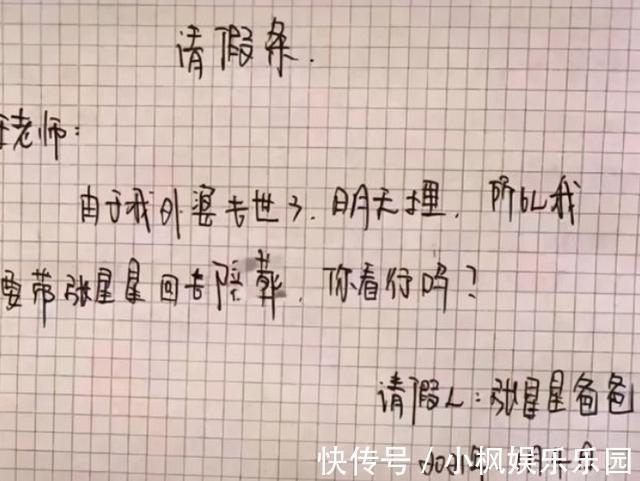 请假条.
老师:
由于我外婆去世了.明天埋.所以我
要带张星星回去陪葬.你看行吗?
请假人:张星星爸爸
快传号/小枫娱乐乐园